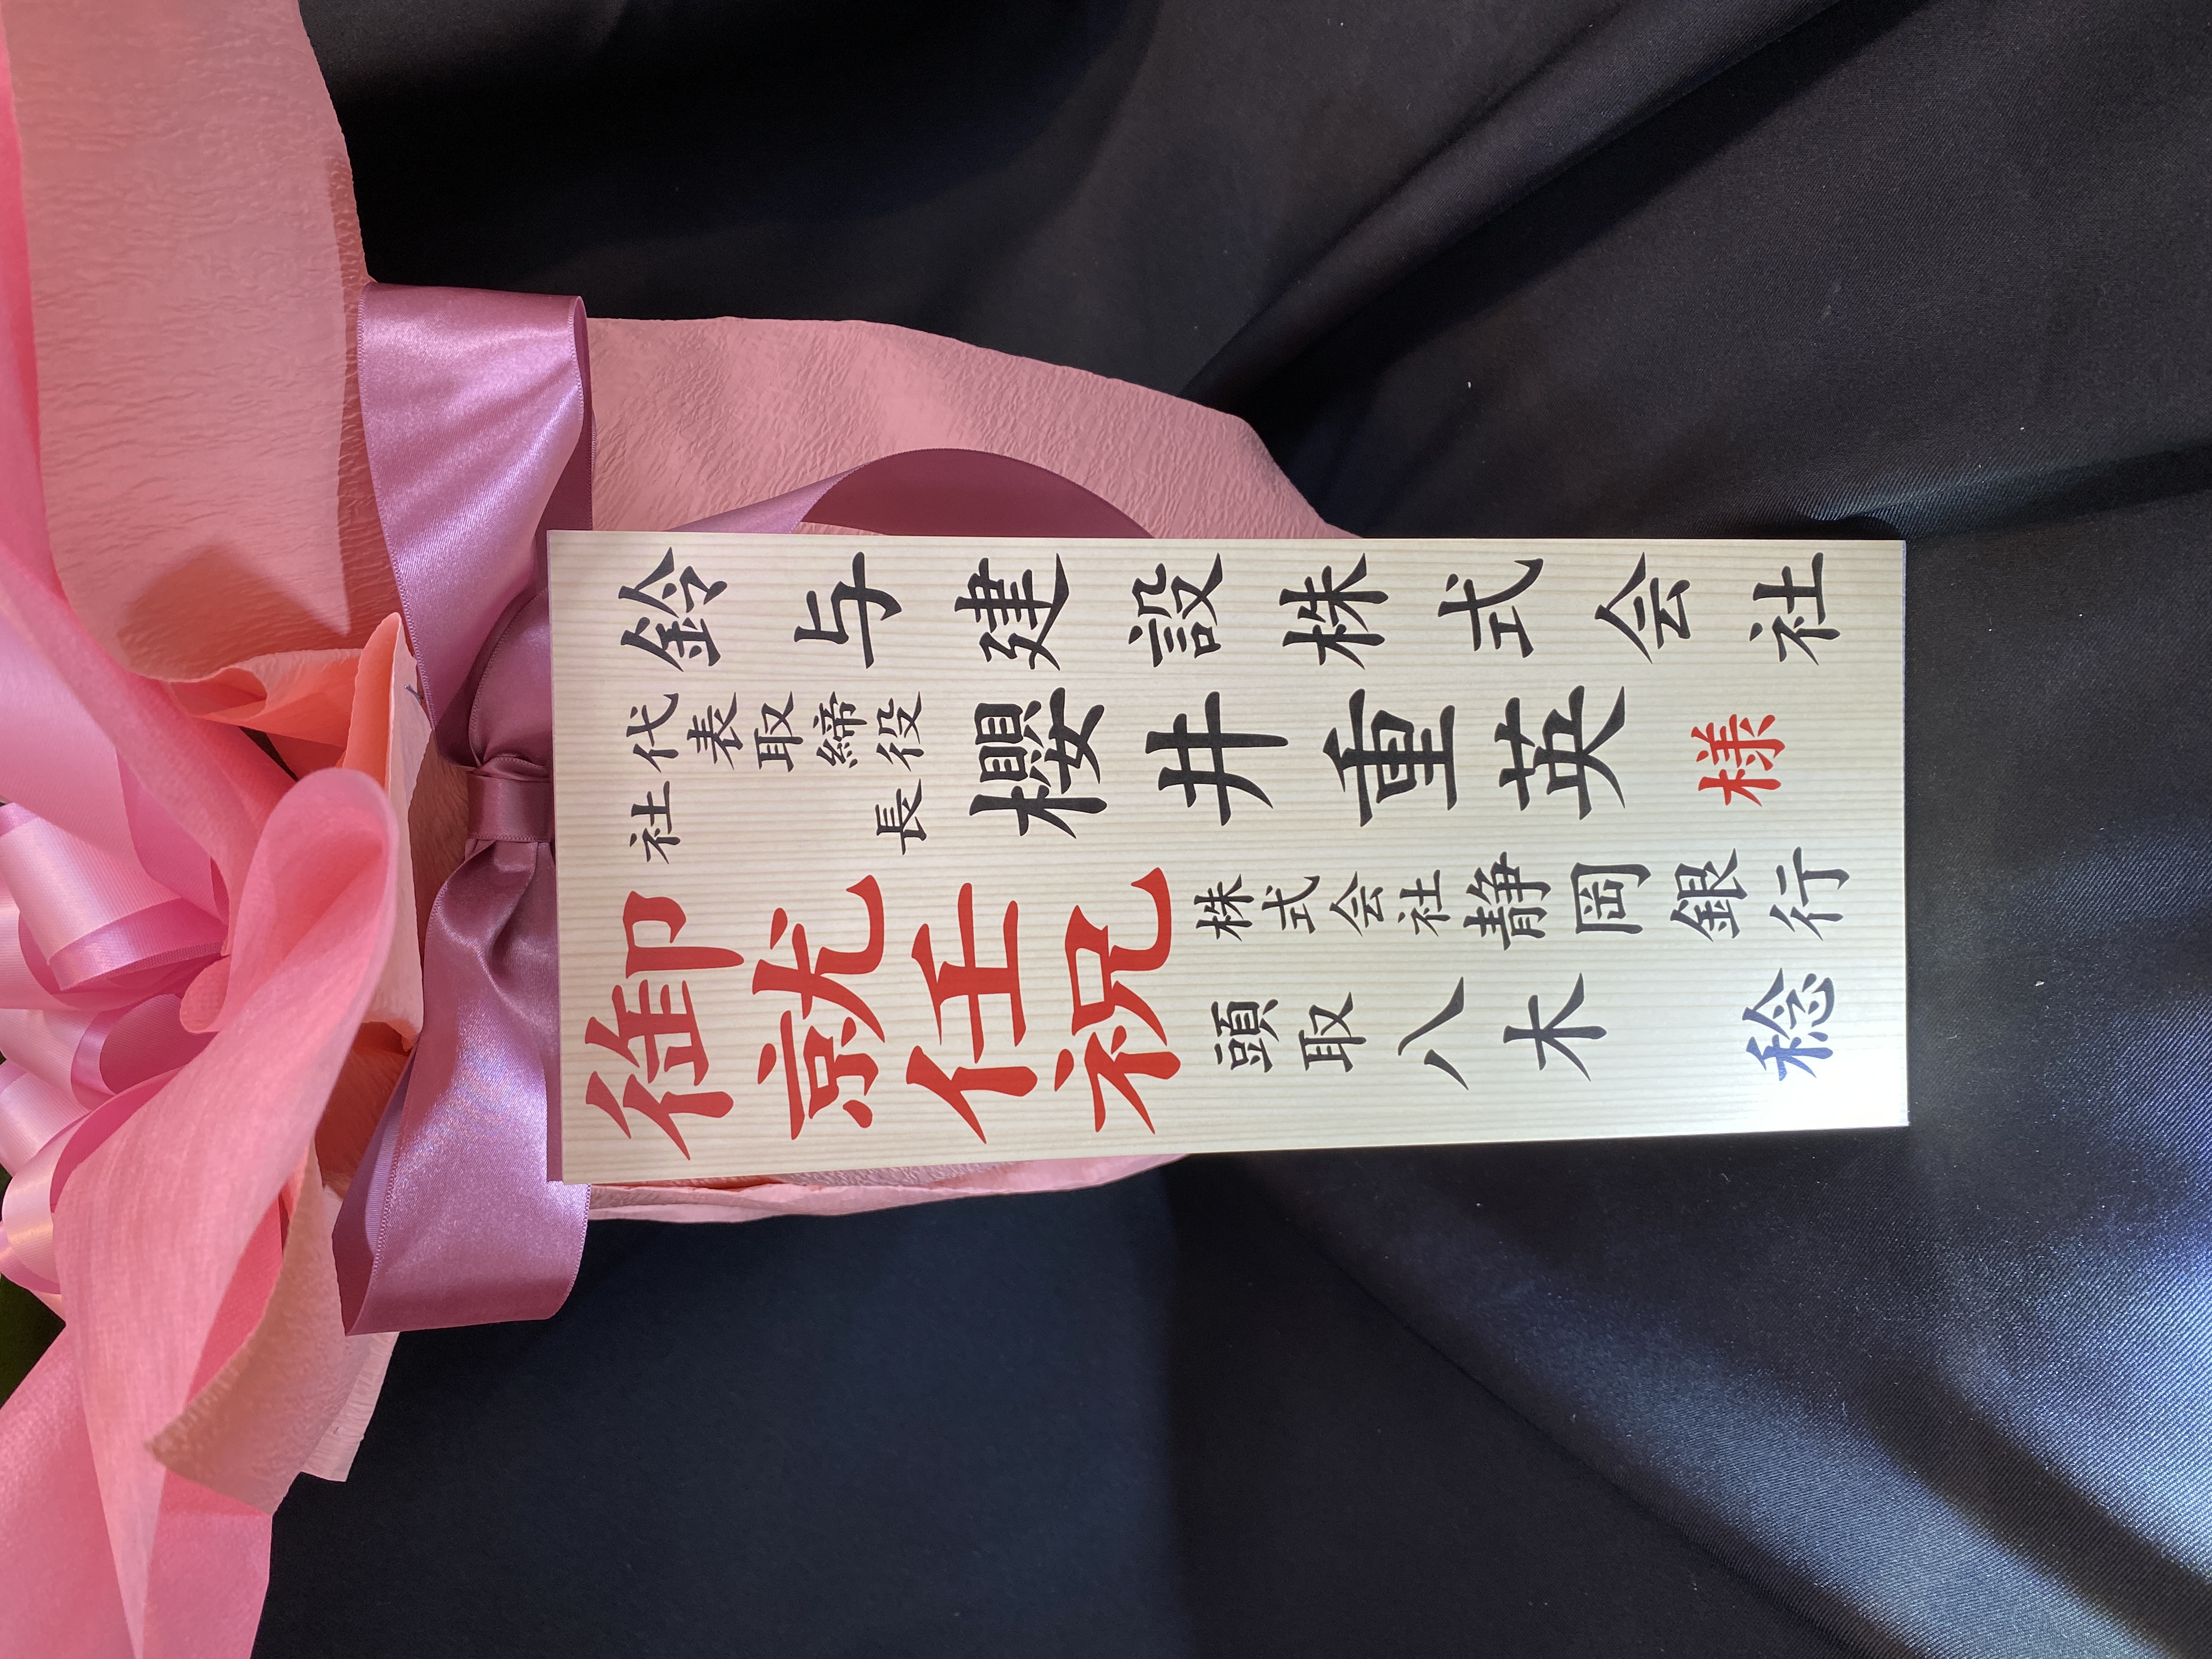 鈴与建設株式会社
代表取締役
社長
櫻井重英様
御就任祝
株式会社静岡銀行
頭取八木稔